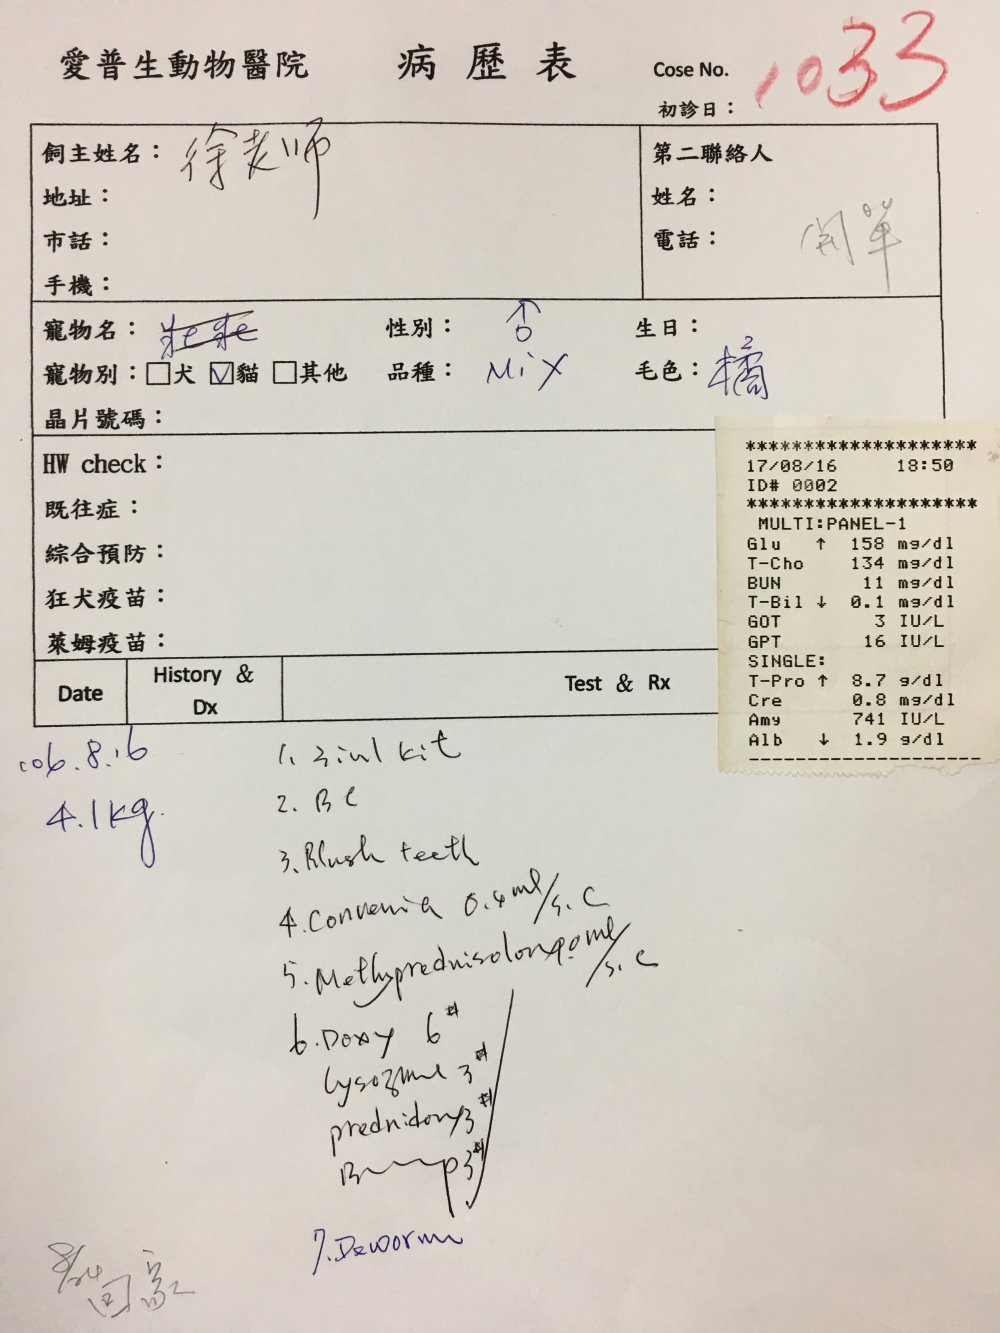 愛普生動物醫院 病歷表 Cose No. 1033
初診日：
飼主姓名：徐老师
地址：
市話：
手機：
第二聯絡人
姓名：
電話：
開單
寵物名： 性別：♂ 生日：
寵物別：□犬 ☑貓 □其他 品種：MiX 毛色：橘
晶片號碼：
HW check：
既往症：
綜合預防：
狂犬疫苗：
萊姆疫苗：
********************
17/08/16 18:50
ID# 0002
********************
MULTI:PANEL-1
Glu ↑ 158 mg/dl
T-Cho 134 mg/dl
BUN 11 mg/dl
T-Bil ↓ 0.1 mg/dl
GOT 3 IU/L
GPT 16 IU/L
SINGLE:
T-Pro ↑ 8.7 g/dl
Cre 0.8 mg/dl
Amy 741 IU/L
Alb ↓ 1.9 g/dl
--------------------
Date History & Dx Test & Rx
106.8.16
4.1kg
1. 3in1 kit
2. BC
3. Blush teeth
4. Convenia 0.4ml/s.c
5. Methyprednisolone ml/s.c
6. Doxy 6#
lysozyme 3#
3#
3#
7. Deworm
8/24 回家